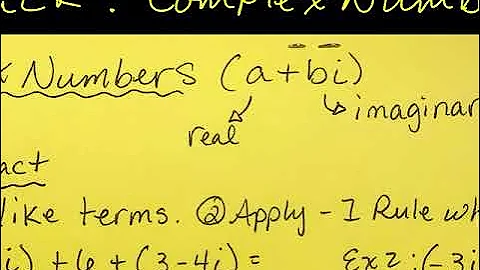 : Complex Numb
Numbers (a+bi)
real
imaginar
act
like terms. ② Apply - 1 Rule wh
i) + 6 + (3-4i) = Ex 2 : (-3i